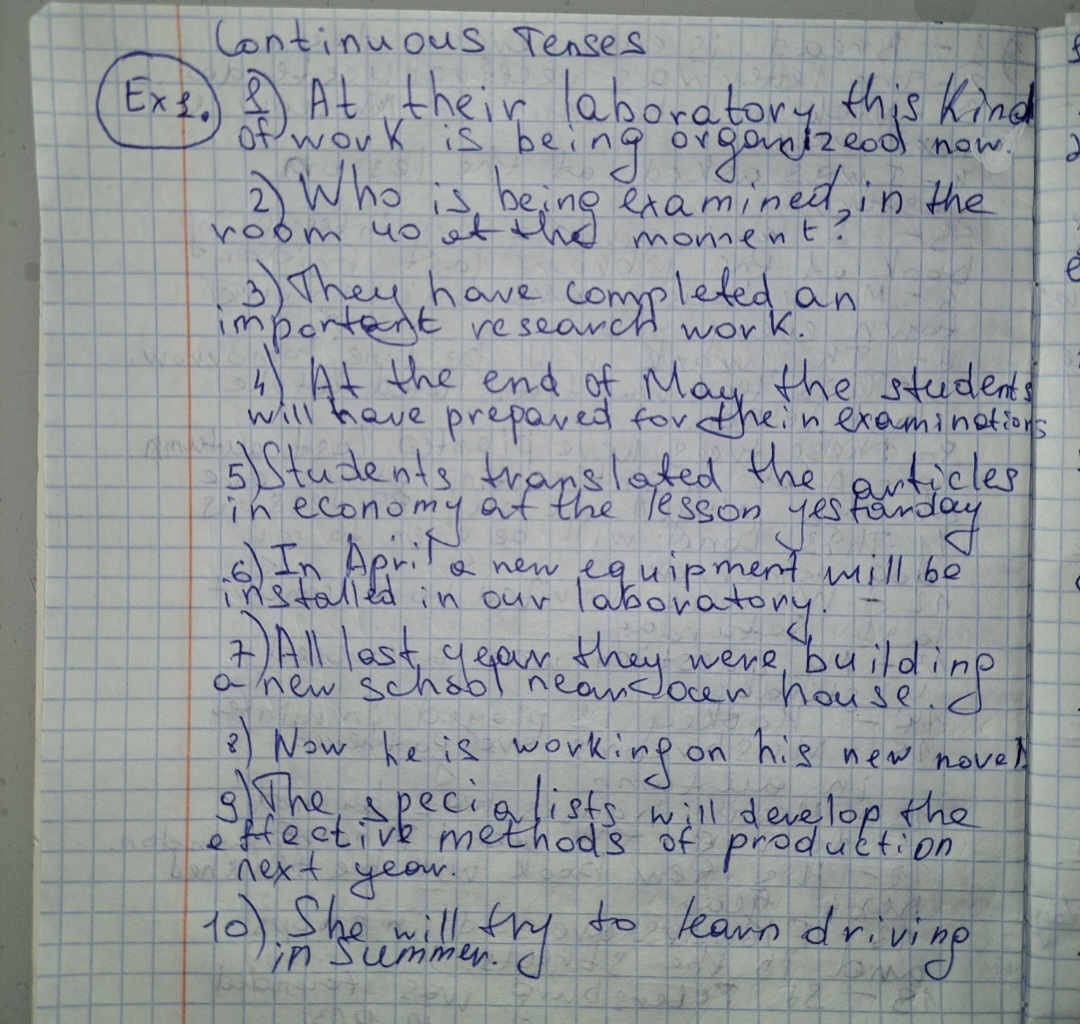 Continuous Tenses
Ex 1. 1) At their laboratory this kind
of work is being organized now.
2) Who is being examined, in the
room 40 at the moment?
3) They have completed an
important research work.
4) At the end of May the students
will have prepared for their examinations
5) Students translated the articles
in economy at the lesson yestarday
6) In April a new equipment will be
installed in our laboratory. -
7) All last year they were building
a new school near our house.
8) Now he is working on his new novel
9) The specialists will develop the
effective methods of production
next year.
10) She will try to learn driving
in summer.